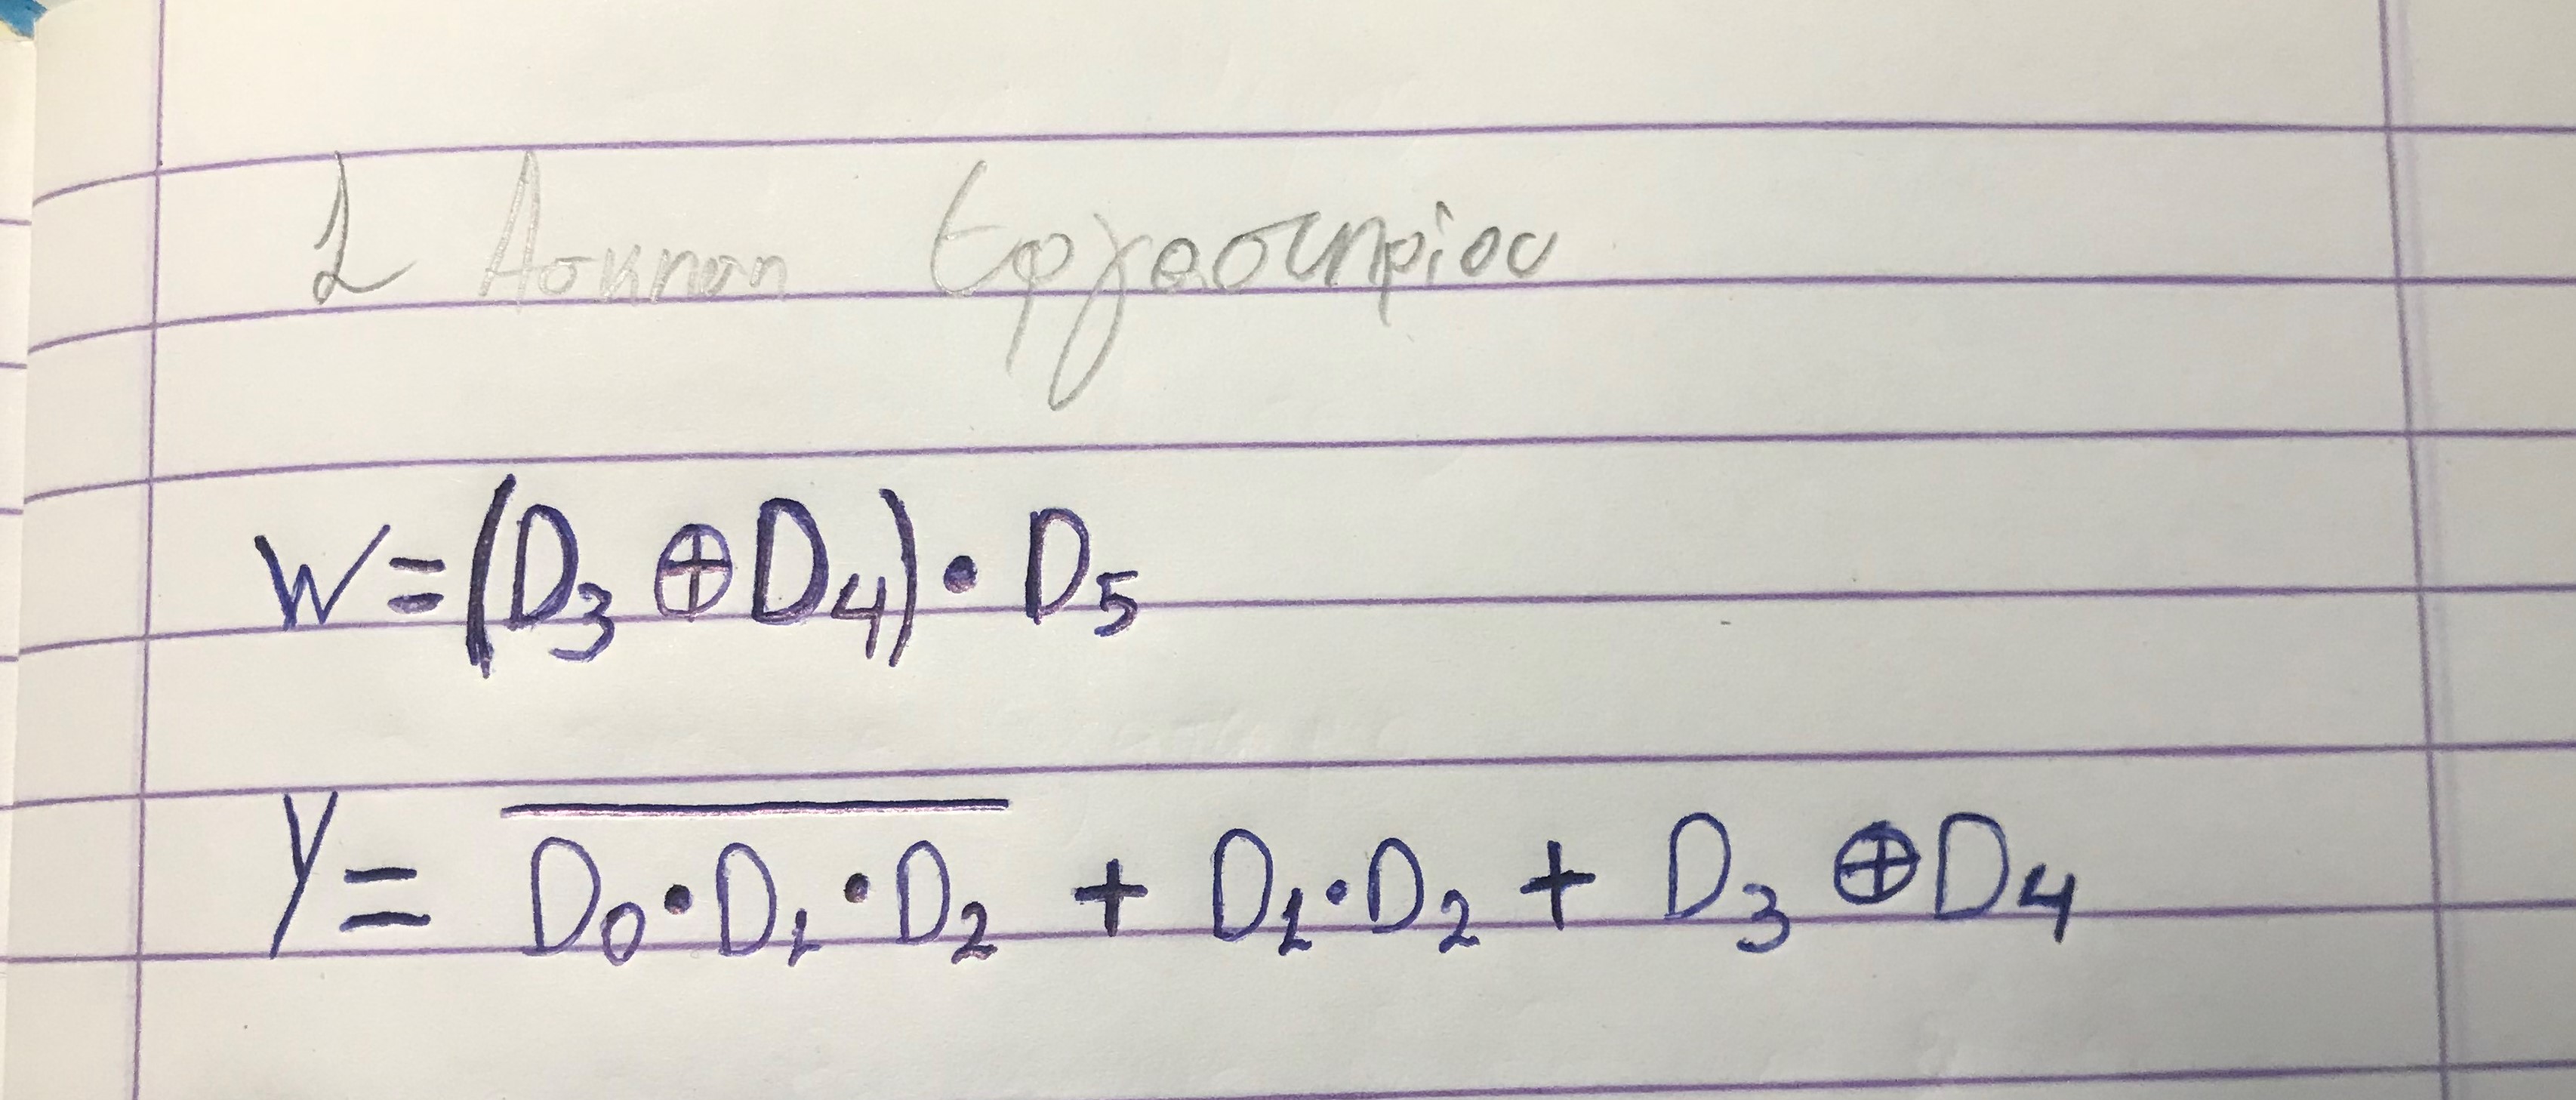 1 Άσκηση Εργαστηρίου
W = (D₃ ⊕ D₄) • D₅
Y = \overline{D₀ • D₁ • D₂} + D₁ • D₂ + D₃ ⊕ D₄